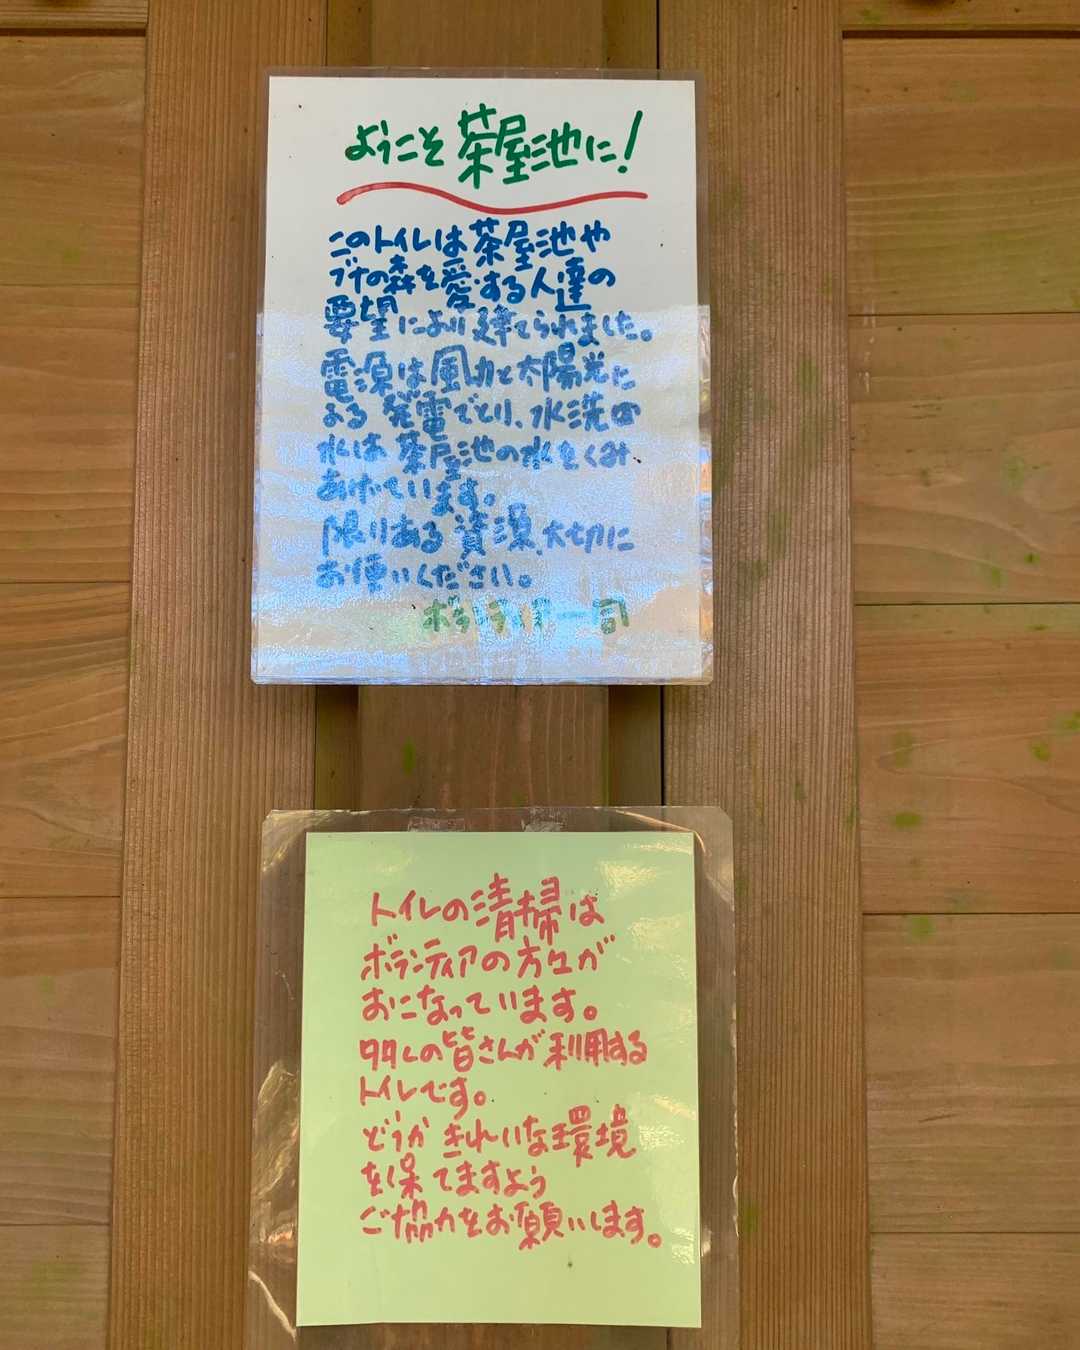 ようこそ茶屋池に!
このトイレは茶屋池や
ブナの森を愛する人達の
要望により建てられました。
電源は風力と太陽光に
よる発電でとり、水洗の
水は茶屋池の水をくみ
あげています。
限りある資源、大切に
お使いください。
ボランティア一同
トイレの清掃は
ボランティアの方々が
おこなっています。
多くの皆さんが利用する
トイレです。
どうかきれいな環境
を保てますよう
ご協力をお願いします。